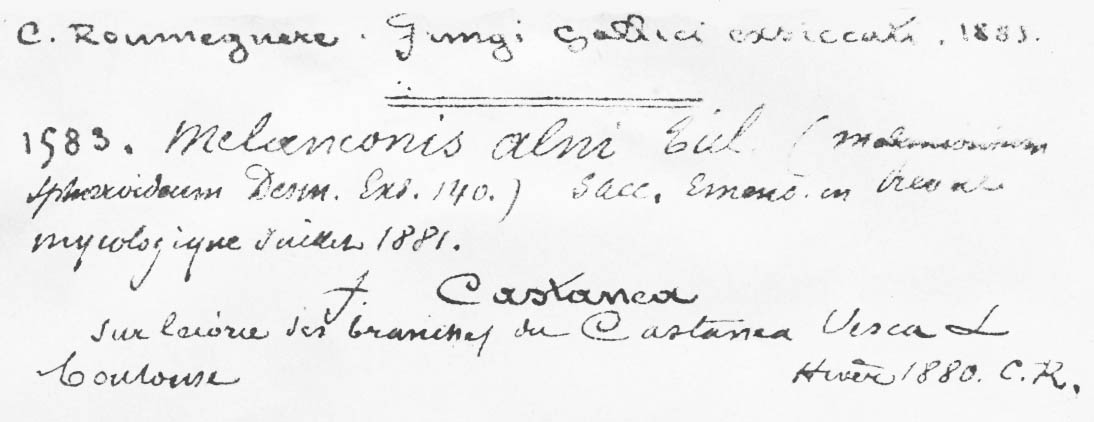 C. Roumeguere. Fungi Gallici exsiccati. 1883.
1583. Melanconis alni Tul. (Melanconium
sphaeroideum Desm. Exs. 140.) Sacc. Emend. in Revue
mycologique Juillet 1881.
f. Castanea
sur l'ecorce des branches du Castanea Vesca L
Toulouse Hiver 1880. C. R.